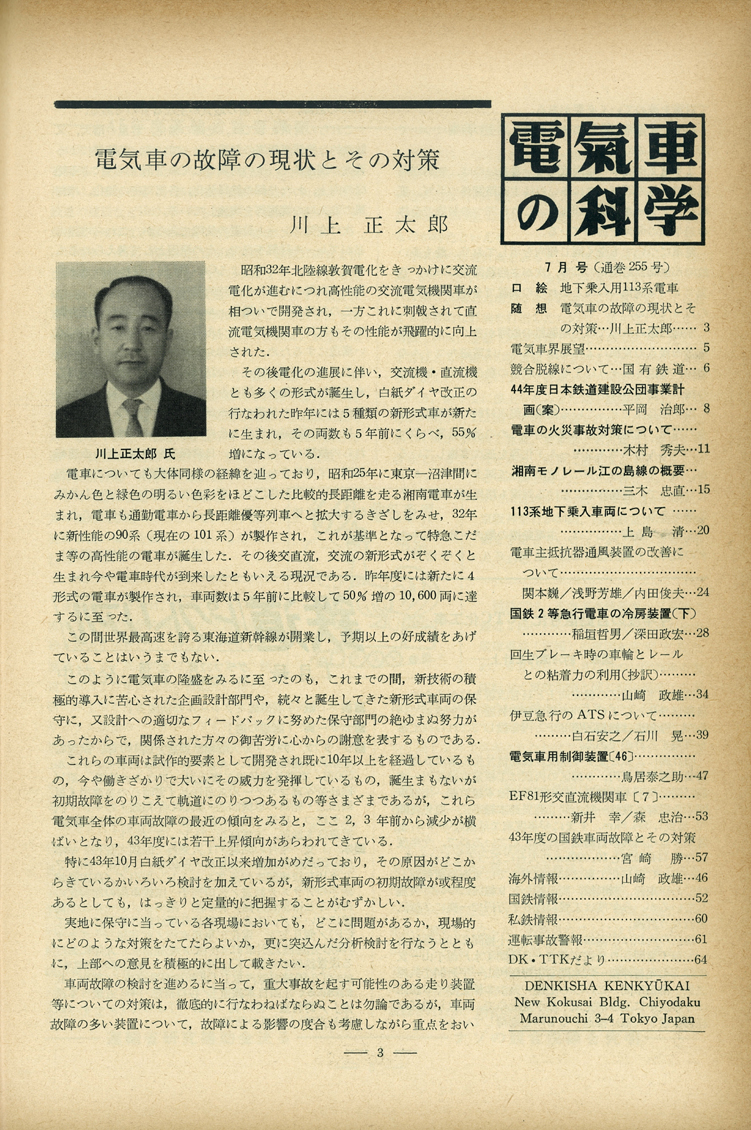 電気車の故障の現状とその対策
川上 正太郎
川上正太郎 氏
昭和32年北陸線敦賀電化をきっかけに交流
電化が進むにつれ高性能の交流電気機関車が
相ついで開発され，一方これに刺戟されて直
流電気機関車の方もその性能が飛躍的に向上
された．
その後電化の進展に伴い，交流機・直流機
とも多くの形式が誕生し，白紙ダイヤ改正の
行なわれた昨年には5種類の新形式車が新た
に生まれ，その両数も5年前にくらべ，55％
増になっている．
電車についても大体同様の経緯を辿っており，昭和25年に東京―沼津間に
みかん色と緑色の明るい色彩をほどこした比較的長距離を走る湘南電車が生
まれ，電車も通勤電車から長距離優等列車へと拡大するきざしをみせ，32年
に新性能の90系（現在の101系）が製作され，これが基準となって特急こだ
ま等の高性能の電車が誕生した．その後交直流，交流の新形式がぞくぞくと
生まれ今や電車時代が到来したともいえる現況である．昨年度には新たに4
形式の電車が製作され，車両数は5年前に比較して50％増の10,600両に達
するに至った．
この間世界最高速を誇る東海道新幹線が開業し，予期以上の好成績をあげ
ていることはいうまでもない．
このように電気車の隆盛をみるに至ったのも，これまでの間，新技術の積
極的導入に苦心された企画設計部門や，続々と誕生してきた新形式車両の保
守に，又設計への適切なフィードバックに努めた保守部門の絶ゆまぬ努力が
あったからで，関係された方々の御苦労に心からの謝意を表するものである．
これらの車両は試作的要素として開発され既に10年以上を経過しているも
の，今や働きざかりで大いにその威力を発揮しているもの，誕生まもないが
初期故障をのりこえて軌道にのりつつあるもの等さまざまであるが，これら
電気車全体の車両故障の最近の傾向をみると，ここ2，3年前から減少が横
ばいとなり，43年度には若干上昇傾向があらわれてきている．
特に43年10月白紙ダイヤ改正以来増加がめだっており，その原因がどこか
らきているかいろいろ検討を加えているが，新形式車両の初期故障が或程度
あるとしても，はっきりと定量的に把握することがむずかしい．
実地に保守に当っている各現場においても，どこに問題があるか，現場的
にどのような対策をたてたらよいか，更に突込んだ分析検討を行なうととも
に，上部への意見を積極的に出して載きたい．
車両故障の検討を進めるに当って，重大事故を起す可能性のある走り装置
等についての対策は，徹底的に行なわねばならぬことは勿論であるが，車両
故障の多い装置について，故障による影響の度合も考慮しながら重点をおい
電氣車
の科学
7月号（通巻255号）
口 絵 地下乗入用113系電車
随 想 電気車の故障の現状とそ
の対策…川上正太郎…… 3
電気車界展望…………………… 5
競合脱線について…国有鉄道… 6
44年度日本鉄道建設公団事業計
画(案)……………平岡 治郎… 8
電車の火災事故対策について……
……………木村 秀夫…11
湘南モノレール江の島線の概要…
……………三木 忠直…15
113系地下乗入車両について ……
……………上島 清…20
電車主抵抗器通風装置の改善に
ついて…………………………
関本巍／浅野芳雄／内田俊夫…24
国鉄2等急行電車の冷房装置(下)
…………稲垣哲男／深田政宏…28
回生ブレーキ時の車輪とレール
との粘着力の利用(抄訳)………
…………山崎 政雄…34
伊豆急行のATSについて………
………白石安之／石川 晃…39
電気車用制御装置〔46〕……………
…………鳥居泰之助…47
EF81形交直流機関車〔7〕………
………新井 幸／森 忠治…53
43年度の国鉄車両故障とその対策
………………宮崎 勝…57
海外情報……………山崎 政雄…46
国鉄情報…………………………52
私鉄情報…………………………60
運転事故警報……………………61
DK・TTKだより………………64
DENKISHA KENKYŪKAI
New Kokusai Bldg. Chiyodaku
Marunouchi 3–4 Tokyo Japan
— 3 —